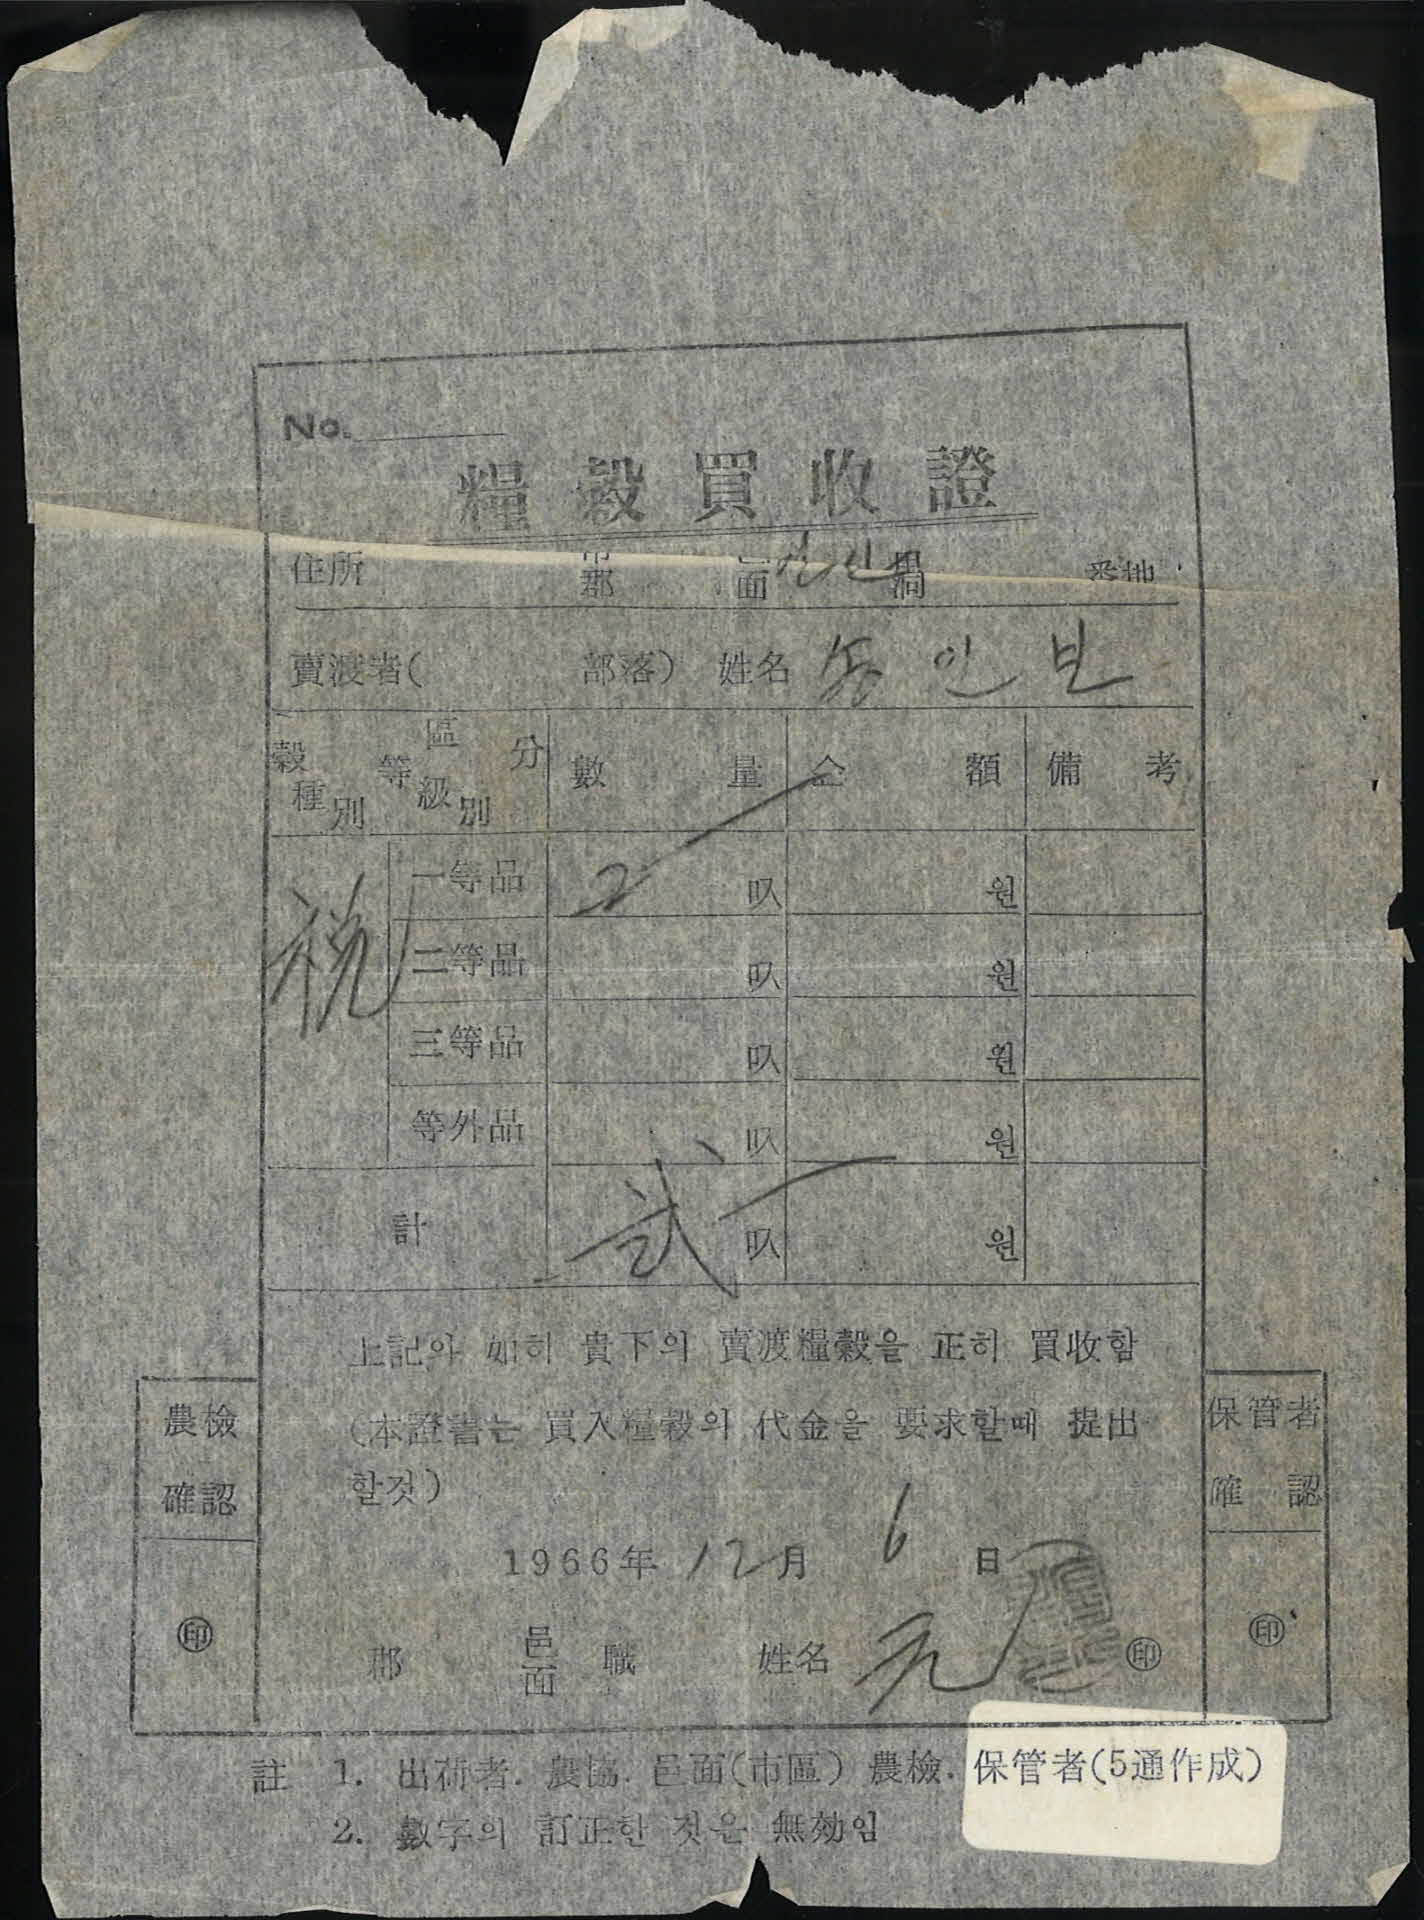 No.
糧穀買收證
住所 市郡 邑面 里洞 番地
賣渡者( 部落) 姓名 인
區分 等級別 穀種別 數量 金額 備考
一等品 2 叺 원
税
二等品 叺 원
三等品 叺 원
等外品 叺 원
計 弍 叺 원
上記와 如히 貴下의 賣渡糧穀을 正히 買收함
(本證書는 買入糧穀의 代金을 要求할때 提出
할것)
1966年 12月 6日
郡 邑面 職 姓名 元 ㊞
農檢
確認
㊞
保管者
確認
㊞
註 1. 出荷者. 農協. 邑面(市區) 農檢. 保管者(5通作成)
2. 數字의 訂正한 것은 無効임